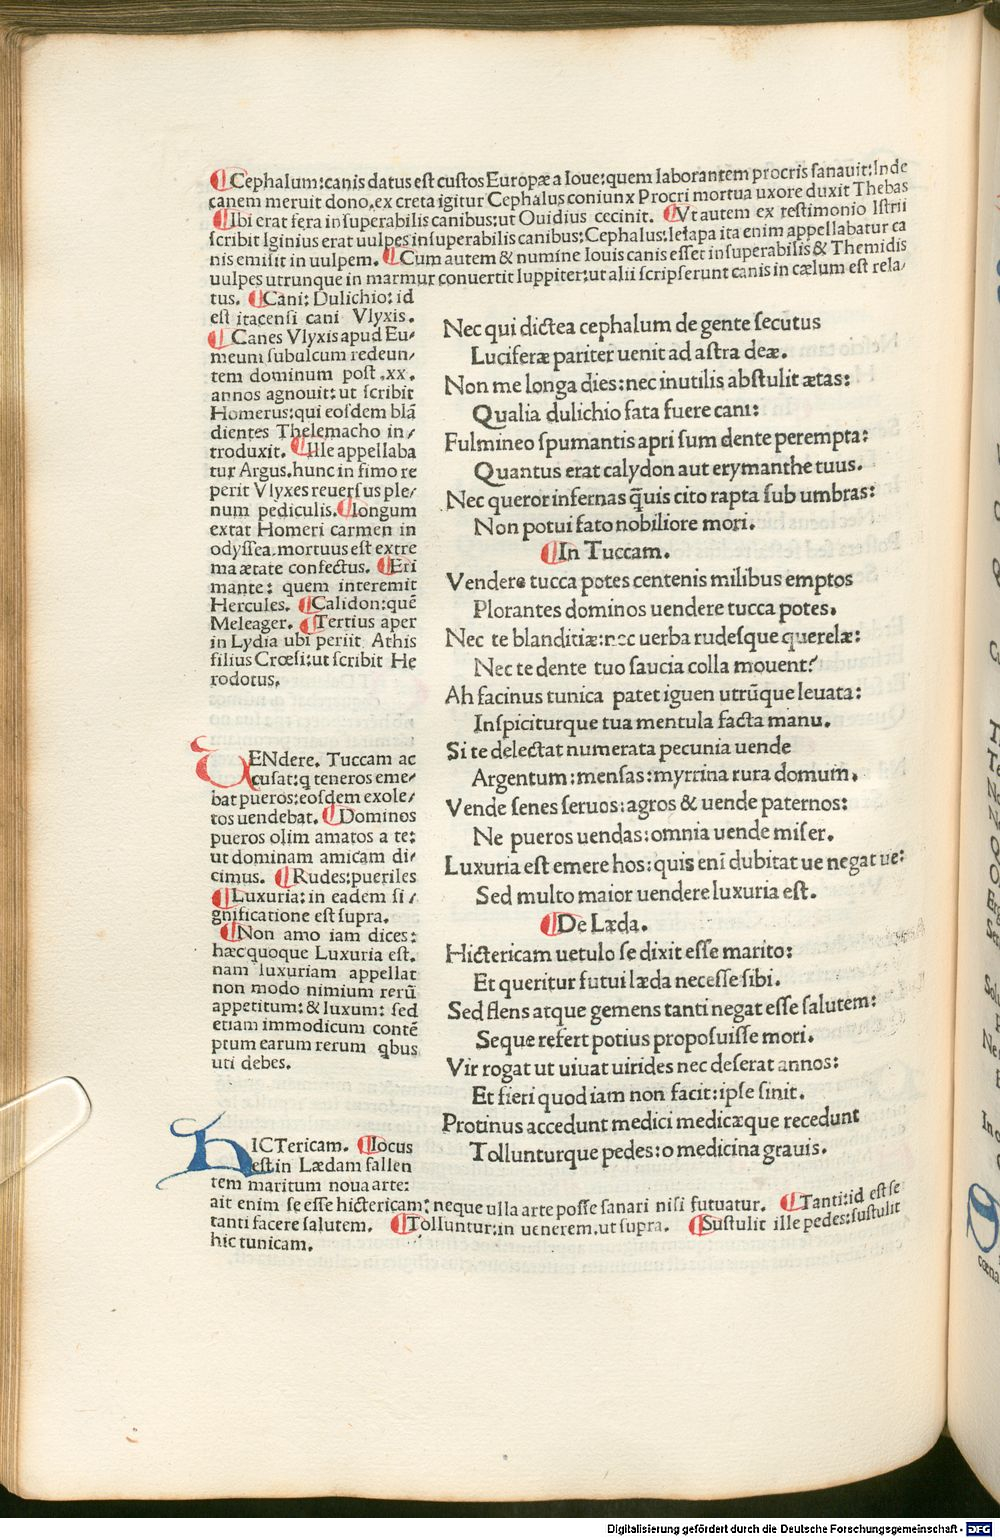 ¶Cephalum:canis datus est custos Europæ a Ioue:quem laborantem procris sanauit:Inde
canem meruit dono,ex creta igitur Cephalus coniunx Procri mortua uxore duxit Thebas
¶Ibi erat fera insuperabilis canibus:ut Ouidius cecinit. ¶Vt autem ex testimonio Istrii
scribit Iginius erat uulpes insuperabilis canibus:Cephalus:lelapa ita enim appellabatur ca
nis emisit in uulpem. ¶Cum autem & numine Iouis canis esset insuperabilis & Themidis
uulpes utrunque in marmur conuertit Iuppiter:ut alii scripserunt canis in cælum est rela/
tus. ¶Cani: Dulichio: id
est itacensi cani Vlyxis.
¶Canes Vlyxis apud Eu/
meum subulcum redeun/
tem dominum post .xx.
annos agnouit: ut scribit
Homerus:qui eosdem blā
dientes Thelemacho in/
troduxit. ¶Ille appellaba
tur Argus.hunc in fimo re
perit Vlyxes reuersus ple/
num pediculis. ¶longum
extat Homeri carmen in
odyssea.mortuus est extre
ma ætate confectus. ¶Eri
mante: quem interemit
Hercules. ¶Calidon:quē
Meleager. ¶Tertius aper
in Lydia ubi periit Athis
filius Crœsi:ut scribit He
rodotus.
VENdere. Tuccam ac
cusat:q teneros eme/
bat pueros:eosdem exole/
tos uendebat. ¶Dominos
pueros olim amatos a te:
ut dominam amicam di/
cimus. ¶Rudes:pueriles
¶Luxuria: in eadem si/
gnificatione est supra.
¶Non amo iam dices:
hæc quoque Luxuria est.
nam luxuriam appellat
non modo nimium rerū
appetitum: & luxum: sed
etiam immodicum contē
ptum earum rerum qbus
uti debes.
HICTericam. ¶locus
est in Lædam fallen
tem maritum noua arte:
ait enim se esse hictericam: neque ulla arte posse sanari nisi futuatur. ¶Tanti:id est se
tanti facere salutem. ¶Tolluntur:in uenerem.ut supra. ¶Sustulit ille pedes:sustulit
hic tunicam.
Nec qui dictea cephalum de gente secutus
Luciferæ pariter uenit ad astra deæ.
Non me longa dies:nec inutilis abstulit ætas:
Qualia dulichio fata fuere cani:
Fulmineo spumantis apri sum dente perempta:
Quantus erat calydon aut erymanthe tuus.
Nec queror infernas q̄uis cito rapta sub umbras:
Non potui fato nobiliore mori.
¶In Tuccam.
Vendere tucca potes centenis milibus emptos
Plorantes dominos uendere tucca potes.
Nec te blanditiæ:nec uerba rudesque querelæ:
Nec te dente tuo saucia colla mouent?
Ah facinus tunica patet iguen utrūque leuata:
Inspiciturque tua mentula facta manu.
Si te delectat numerata pecunia uende
Argentum:mensas:myrrina rura domum.
Vende senes seruos:agros & uende paternos:
Ne pueros uendas:omnia uende miser.
Luxuria est emere hos:quis eni dubitat ue negat ue:
Sed multo maior uendere luxuria est.
¶De Læda.
Hictericam uetulo se dixit esse marito:
Et queritur futui læda necesse sibi.
Sed flens atque gemens tanti negat esse salutem:
Seque refert potius proposuisse mori.
Vir rogat ut uiuat uirides nec deserat annos:
Et fieri quod iam non facit:ipse sinit.
Protinus accedunt medici medicæque recedunt
Tollunturque pedes:o medicina grauis.
Digitalisierung gefördert durch die Deutsche Forschungsgemeinschaft - DFG